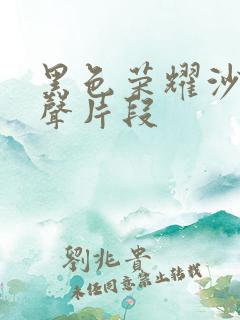 黑色荣耀沙
聲片段
劉兆貴
未经同意禁止转载